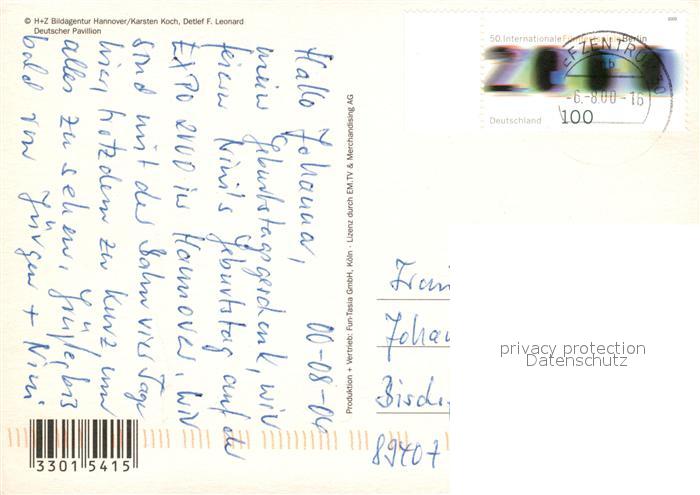 © H+Z Bildagentur Hannover/Karsten Koch, Detlef F. Leonard
Deutscher Pavillion
00-08-06
Hallo Johanna,
mein Geburtstagsgeschenk, wir
feiern Nini's Geburtstag auf der
EXPO 2000 in Hannover. Wir
sind mit der Bahn vier Tage
hier, trotzdem zu kurz, um
alles zu sehen. Grüße, bis
bald von Jürgen + Nini
3301 5415
Produktion + Vertrieb: Fun-Tasia GmbH, Köln · Lizenz durch EM.TV & Merchandising AG
50. Internationale Berlin
2000
Deutschland
100
BRIEFZENTRUM
-6.-8.00-16
Johan
89407
privacy protection
Datenschutz